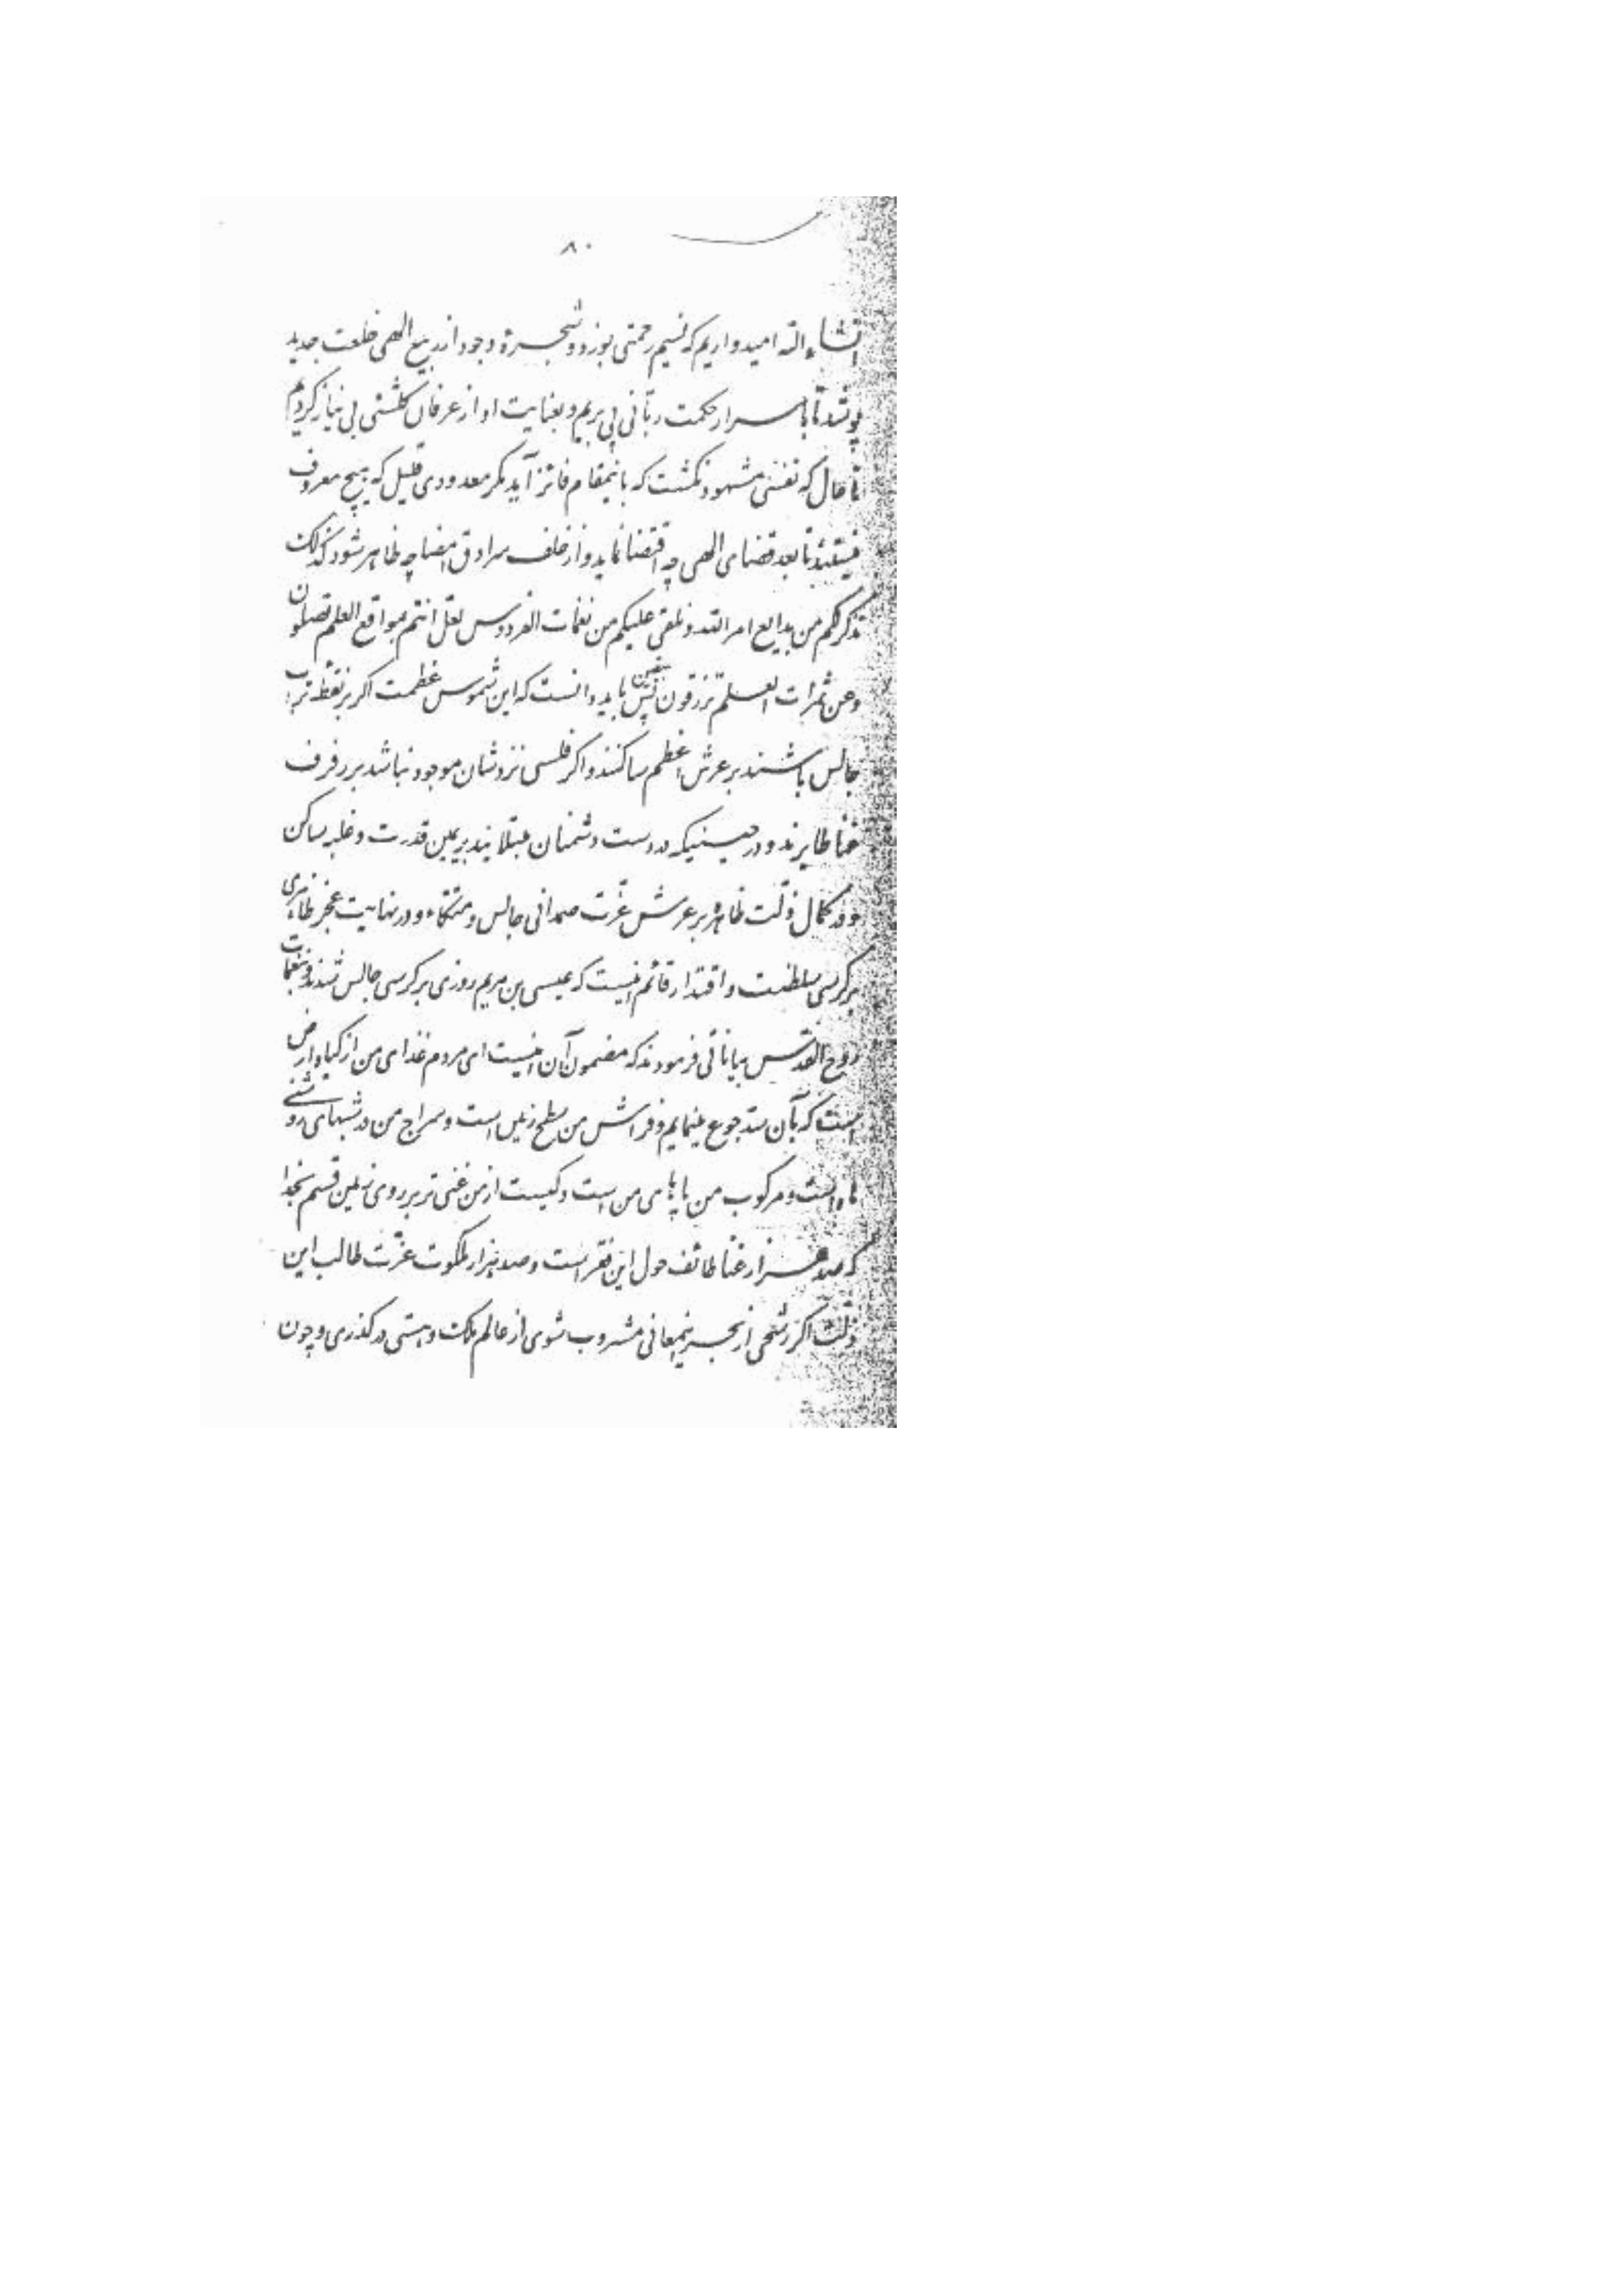 ۸۰
انشاء الله امیدواریم که نسیم رحمتی بوزد و شجرهٔ وجود از ربیع الهی خلعت جدید
پوشد تا باسرار حکمت ربّانی پی بریم و بعنایت او از عرفان کلشئی بی نیاز گردیم
تا حال که نفسی مشهود نگشت که باینمقام فائز آید مگر معدودی قلیل که هیچ معروف
نیستند تا بعد قضای الهی چه اقتضا نماید و از خلف سرادق امضا چه ظاهر شود کذلک
نذکر لکم من بدایع امر الله و نلقی علیکم من نغمات الفردوس لعلّ انتم بمواقع العلم تصلون
و من ثمرات العلم ترزقون پس بیقین باید دانست که این شموس عظمت اگر بر نقطه تراب
جالس باشند بر عرش اعظم ساکنند و اگر فلسی نزدشان موجود نباشد بر رفرف
غنا طایرند و در حینیکه در دست دشمنان مبتلایند بر یمین قدرت و غلبه ساکن
و در کمال ذلّت ظاهره بر عرش عزّت صمدانی جالس و متکاء و در نهایت عجز ظاهری
بر کرسی سلطنت و اقتدار قائم اینست که عیسی بن مریم روزی بر کرسی جالس شدند و بنغمات
روح القدس بیاناتی فرمودند که مضمون آن اینست ای مردم غذای من از گیاه ارض
است که بآن سدّ جوع مینمایم و فراش من سطح زمین است و سراج من در شبها روشنی
ماه است و مرکوب من پاهای من است و کیست از من غنی تر بر روی زمین قسم بخدا
که صد هزار غنا طائف حول این فقر است و صد هزار ملکوت عزّت طالب این
ذلّت اگر رشحی از بحر اینمعانی مشروب شوی از عالم ملک و هستی درگذری و چون